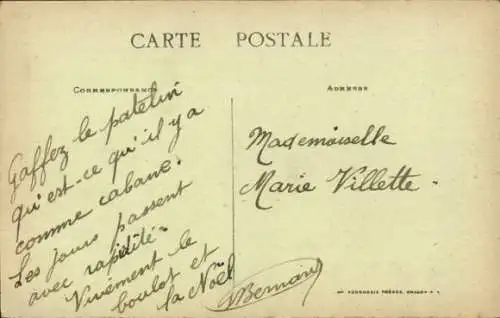 CARTE POSTALE
CORRESPONDANCE
ADRESSE
Gaffez le patelin
qu'est-ce qu'il y a
comme cabane.
Les jours passent
avec rapidité.
Vivement le
boulot et
la Noël
Bernard
Mademoiselle
Marie Villette